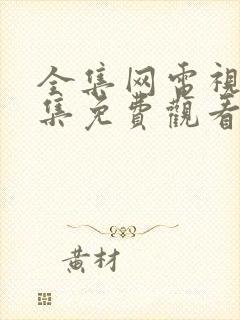 全集网電視
集免費觀看
黃材